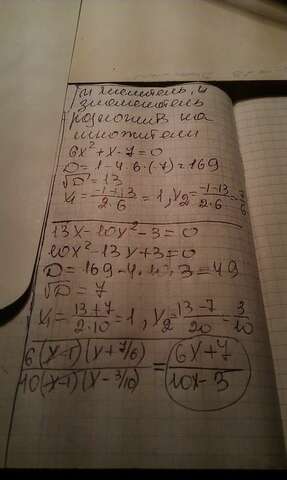 и числитель, и
знаменатель
разложить на
множители
6x²+x-7=0
D=1-4·6·(-7)=169
√D=13
x₁=(-1+13)/(2·6)=1, x₂=(-1-13)/(2·6)=-7/6
13x-10x²-3=0
10x²-13x+3=0
D=169-4·10·3=49
√D=7
x₁=(13+7)/(2·10)=1, x₂=(13-7)/20=3/10
6(x-1)(x+7/6)/10(x-1)(x-3/10)=(6x+7)/(10x-3)